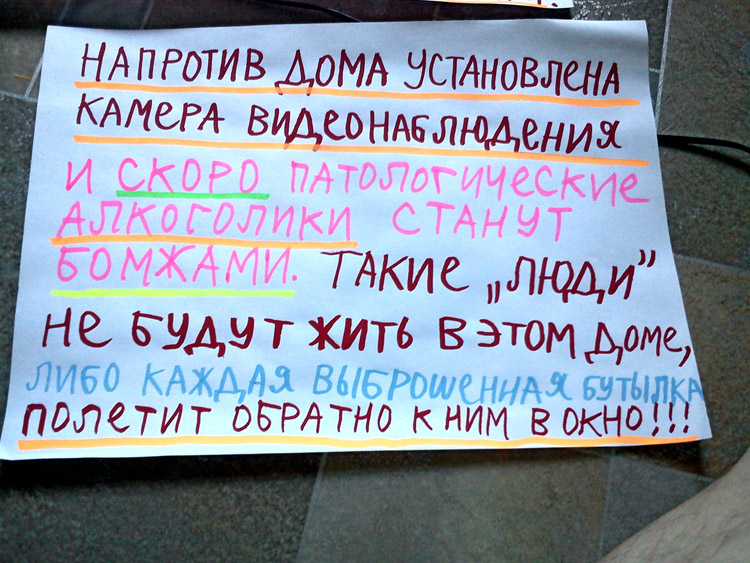 НАПРОТИВ ДОМА УСТАНОВЛЕНА
КАМЕРА ВИДЕОНАБЛЮДЕНИЯ
И СКОРО ПАТОЛОГИЧЕСКИЕ
АЛКОГОЛИКИ СТАНУТ
БОМЖАМИ. ТАКИЕ „ЛЮДИ”
НЕ БУДУТ ЖИТЬ В ЭТОМ ДОМЕ,
ЛИБО КАЖДАЯ ВЫБРОШЕННАЯ БУТЫЛКА
ПОЛЕТИТ ОБРАТНО К НИМ В ОКНО!!!